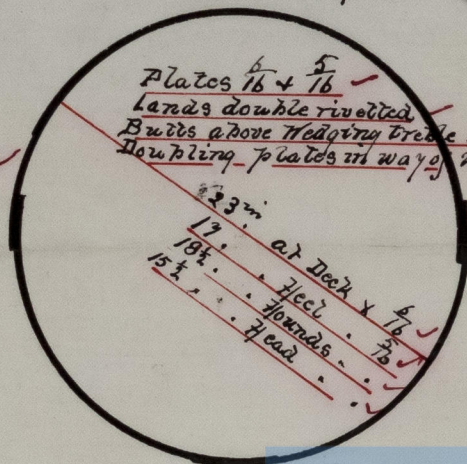 Plates 6/16 & 5/16
Lands double rivetted
Butts above Wedging treble
Doubling plates in way of
23 in. at Deck x 6/16
17 . . Heel . 5/16
18½ . . Hounds . .
15½ . . Head . .